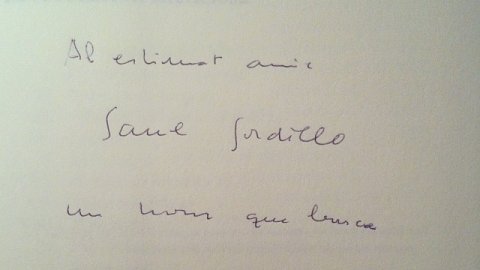 Al estimat amic
Saül Gordillo
un home que busca